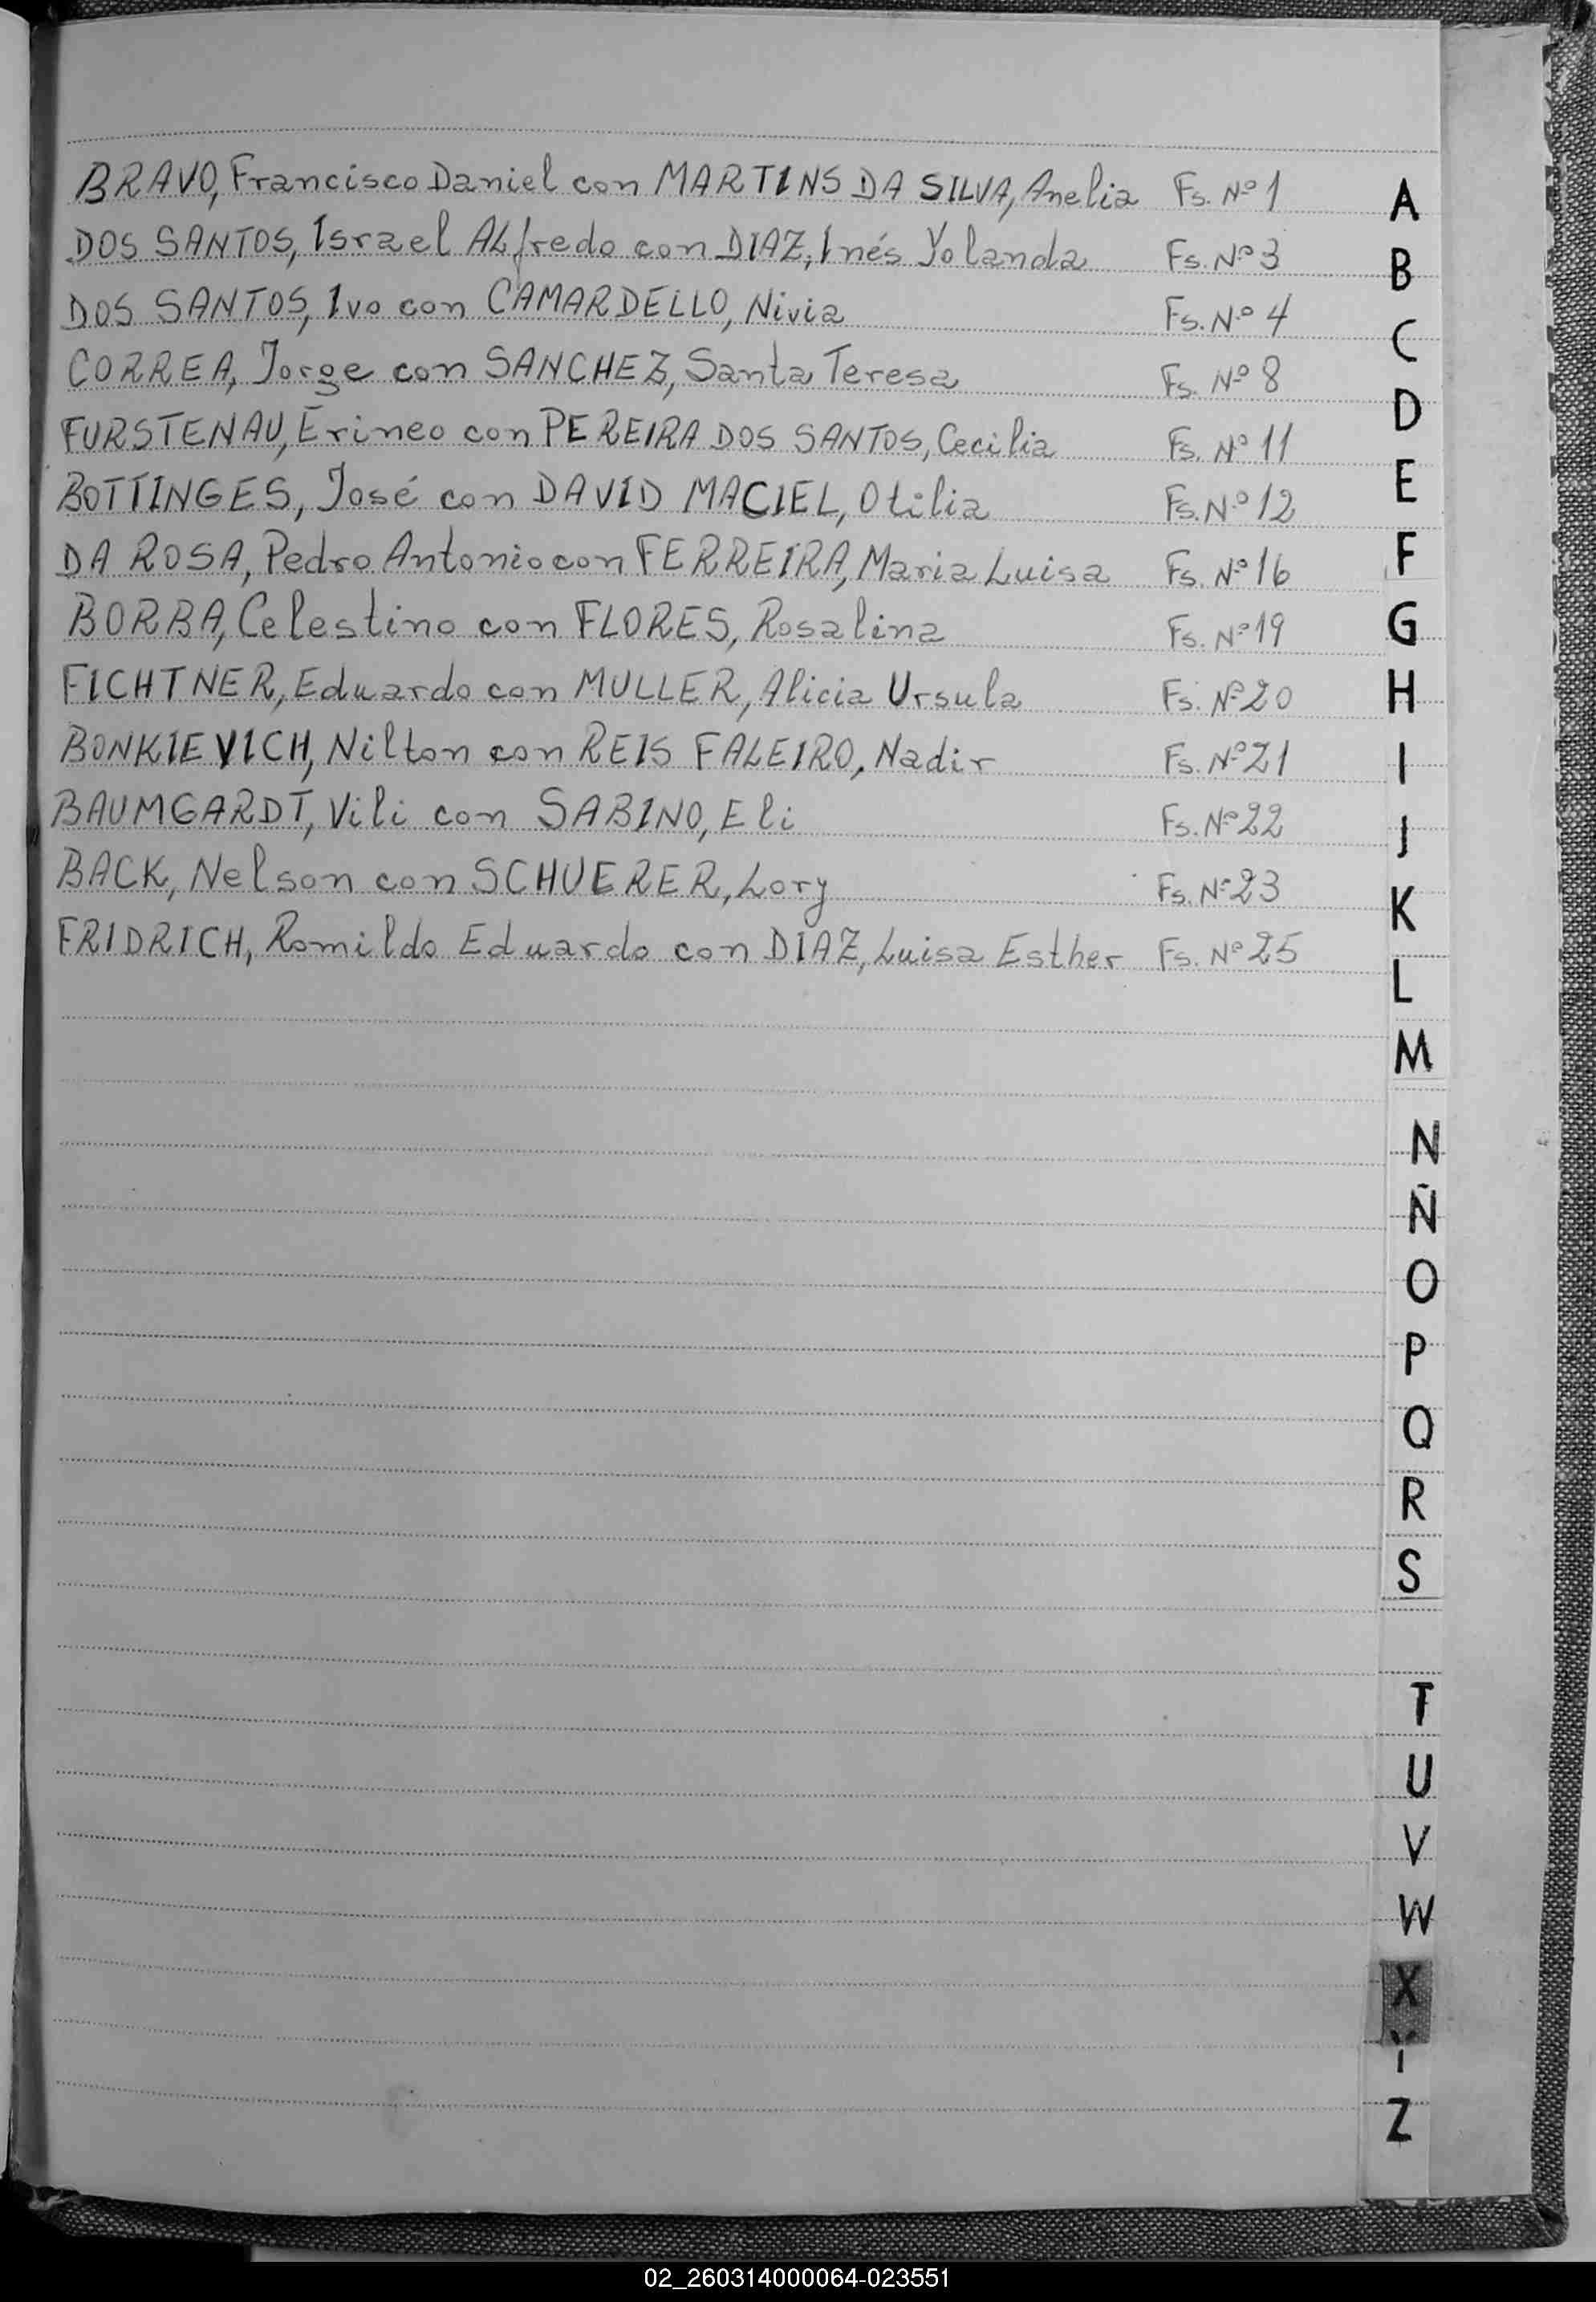 BRAVO, Francisco Daniel con MARTINS DA SILVA, Anelia Fs. Nº 1
DOS SANTOS, Israel ALfredo con DIAZ, Inés Yolanda Fs. Nº 3
DOS SANTOS, Ivo con CAMARDELLO, Nivia Fs. Nº 4
CORREA, Jorge con SANCHEZ, Santa Teresa Fs. Nº 8
FURSTENAU, Erineo con PEREIRA DOS SANTOS, Cecilia Fs. Nº 11
BOTTINGES, José con DAVID MACIEL, Otilia Fs. Nº 12
DA ROSA, Pedro Antonio con FERREIRA, Maria Luisa Fs. Nº 16
BORBA, Celestino con FLORES, Rosalina Fs. Nº 19
FICHTNER, Eduardo con MULLER, Alicia Ursula Fs. Nº 20
BONKIEVICH, Nilton con REIS FALEIRO, Nadir Fs. Nº 21
BAUMGARDT, Vili con SABINO, Eli Fs. Nº 22
BACK, Nelson con SCHUERER, Lory Fs. Nº 23
FRIDRICH, Romildo Eduardo con DIAZ, Luisa Esther Fs. Nº 25
A
B
C
D
E
F
G
H
I
J
K
L
M
N
Ñ
O
P
Q
R
S
T
U
V
W
X
Y
Z
02_260314000064-023551